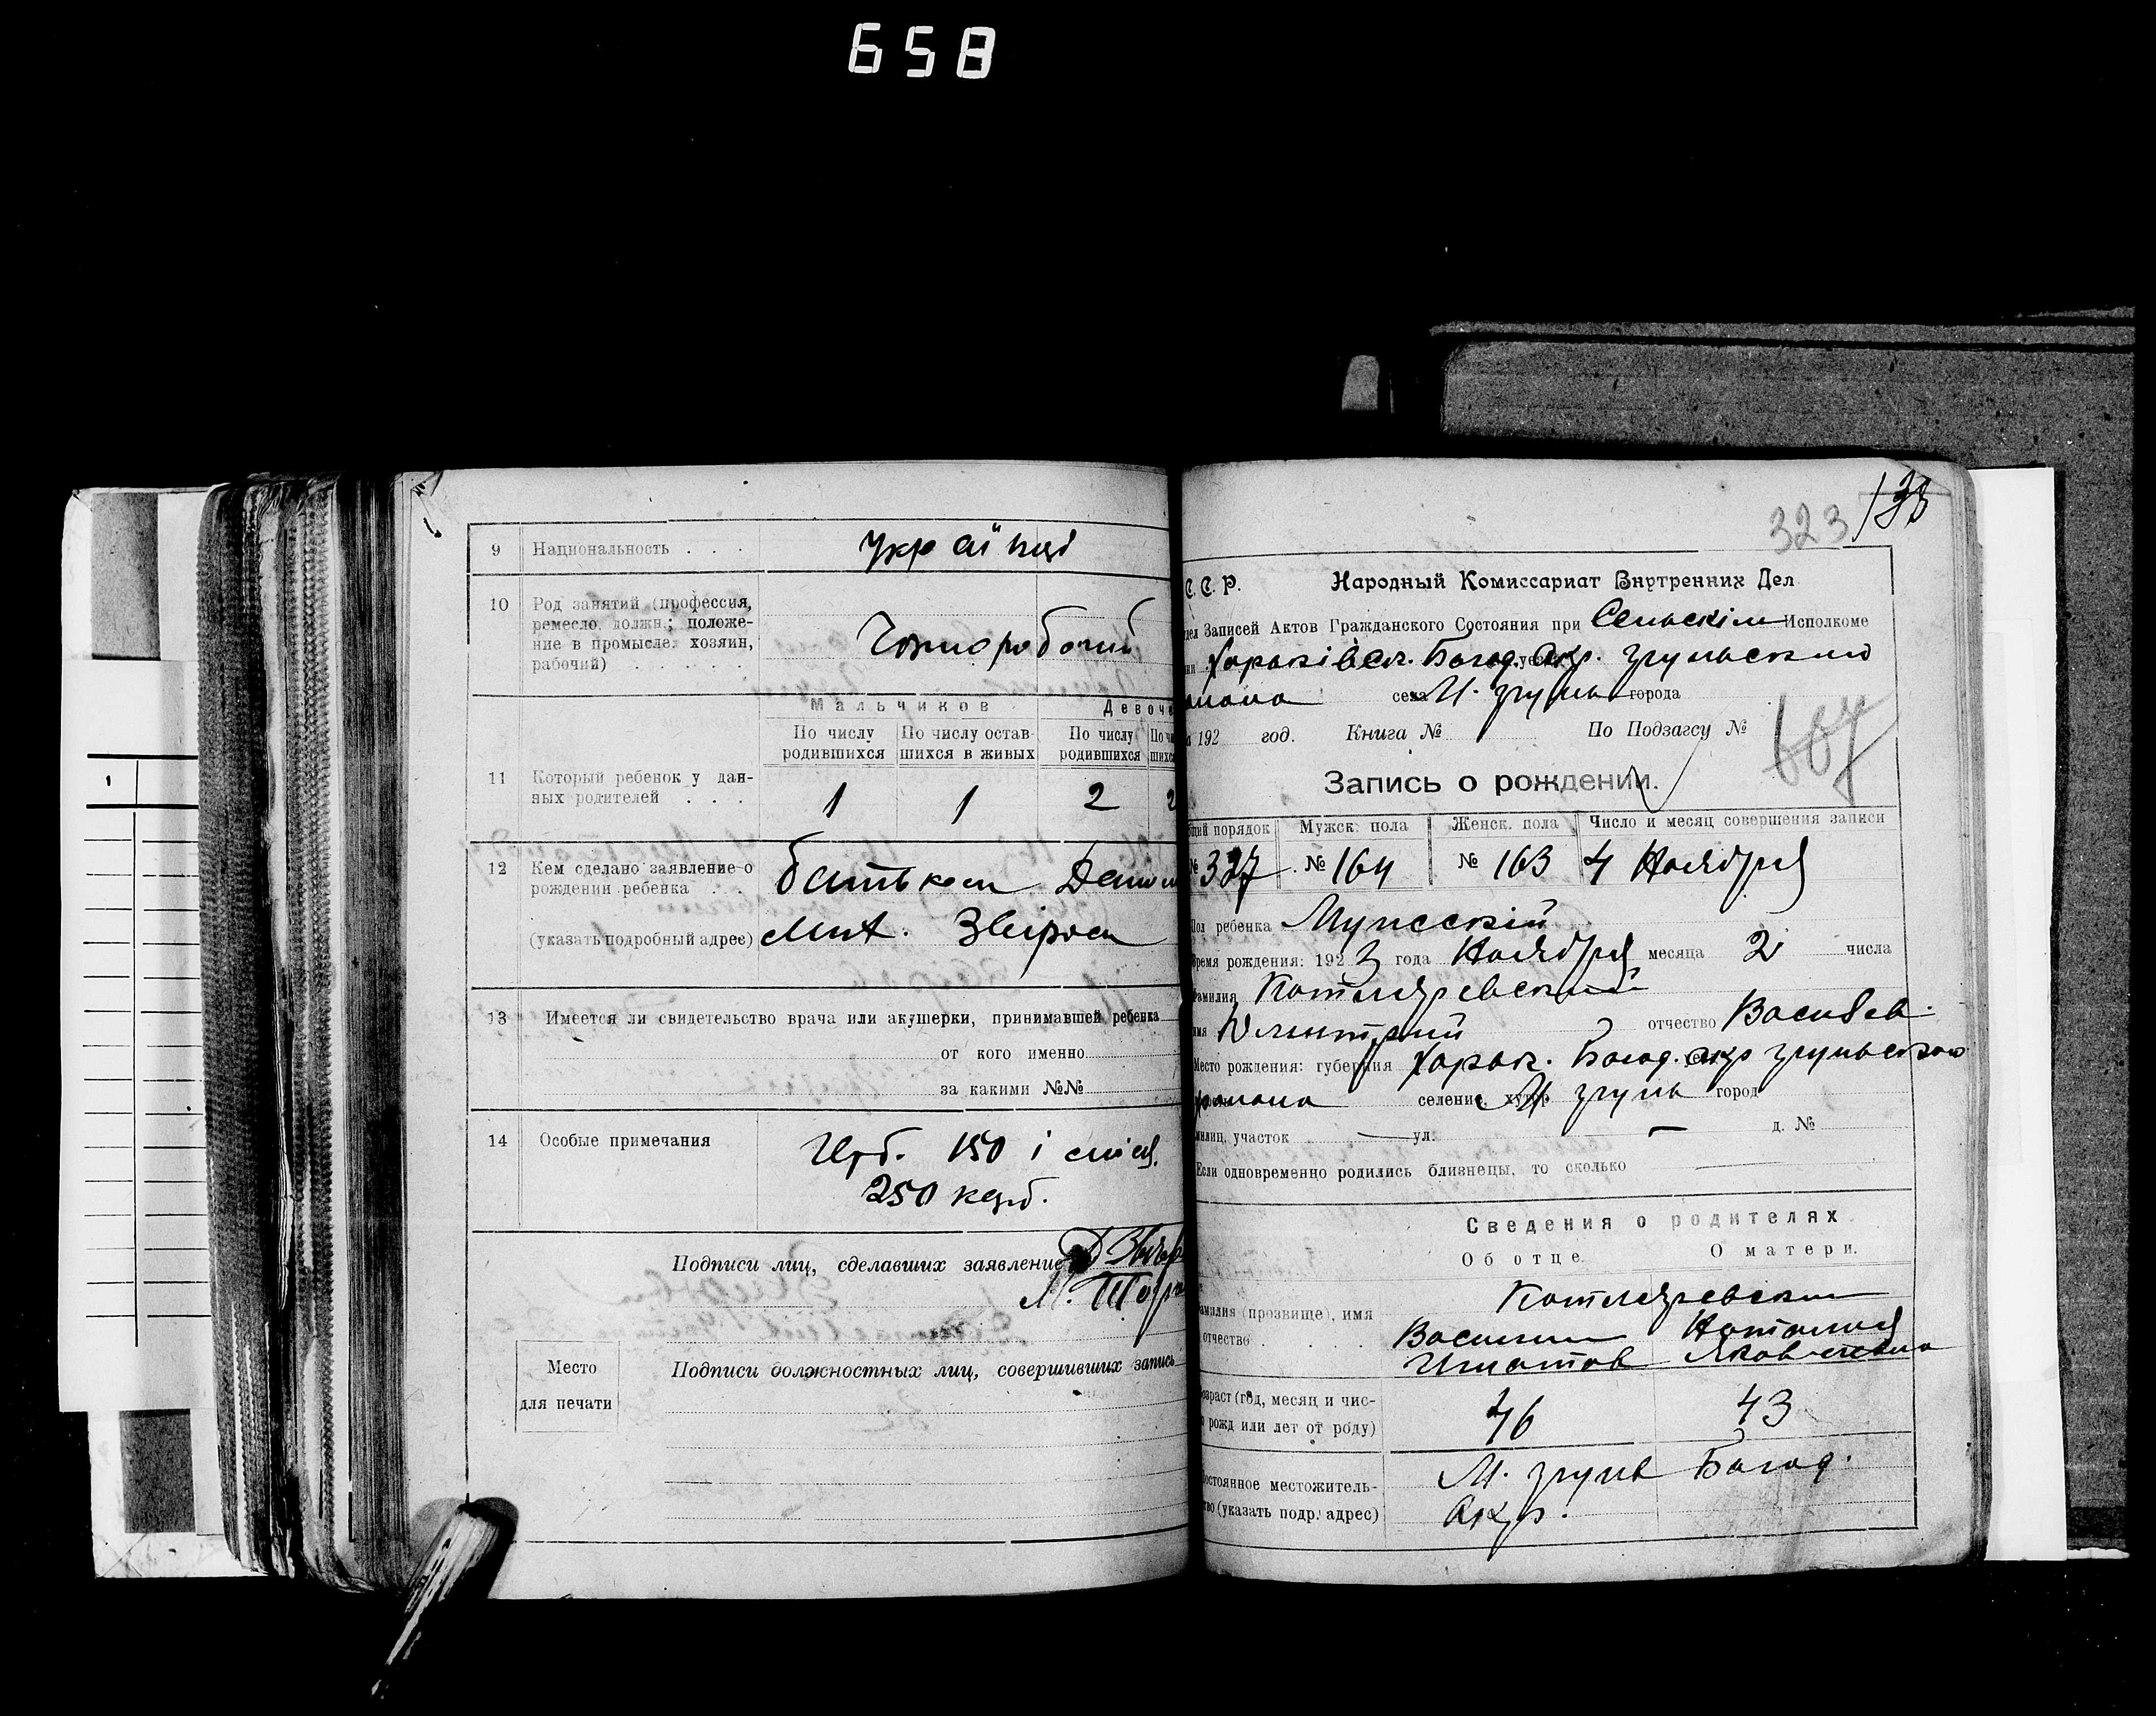 658
9 Национальность . . . Українці
10 Род занятий (профессия,
ремесло, должн.; положе-
ние в промысле: хозяин,
рабочий) . . . . . .
Чорноробочий
Мальчиков Девоче
По числу родившихся По числу остав-шихся в живых По числу родившихся
11 Который ребенок у дан-
ных родителей . . . 1 1 2 2
12 Кем сделано заявление о
рождении ребенка . . . батьком
(указать подробный адрес) Мит.
13 Имеется ли свидетельство врача или акушерки, принимавшей ребенка
от кого именно
за какими №№
14 Особые примечания
Герб. 150 і
250 карб.
Подписи лиц, сделавших заявление
Место
для печати
Подписи должностных лиц, совершивших запись
323 133
С. С. Р. Народный Комиссариат Внутренних Дел
дел Записей Актов Гражданского Состояния при Сельскім Исполкоме
Богод. окр. Згунського
села М. Згунь города
192 год. Книга № По Подзагсу № 607
Запись о рождении.
щий порядок Мужск. пола Женск. пола Число и месяц совершения записи
№ 327 № 164 № 163 4 Ноября
Пол ребенка Мужескій
Время рождения: 1923 года Ноября месяца 2 числа
Фамилия Котляревский
имя Дмитрий отчество Василев.
Место рождения: губерния Харьк. Богод. окр
селение, хутор город
милиц. участок ул. д. №
Если одновременно родились близнецы, то сколько
Сведения о родителях
Об отце. О матери.
Фамилия (прозвище), имя
отчество . . . .
Котляревские
Василий Наталия
Игнатов Яковлевна
озраст (год, месяц и чис-
рожд или лет от роду) 46 43
остоянное местожитель-
тво (указать подр. адрес)
М. Згунь Богод.
окр.